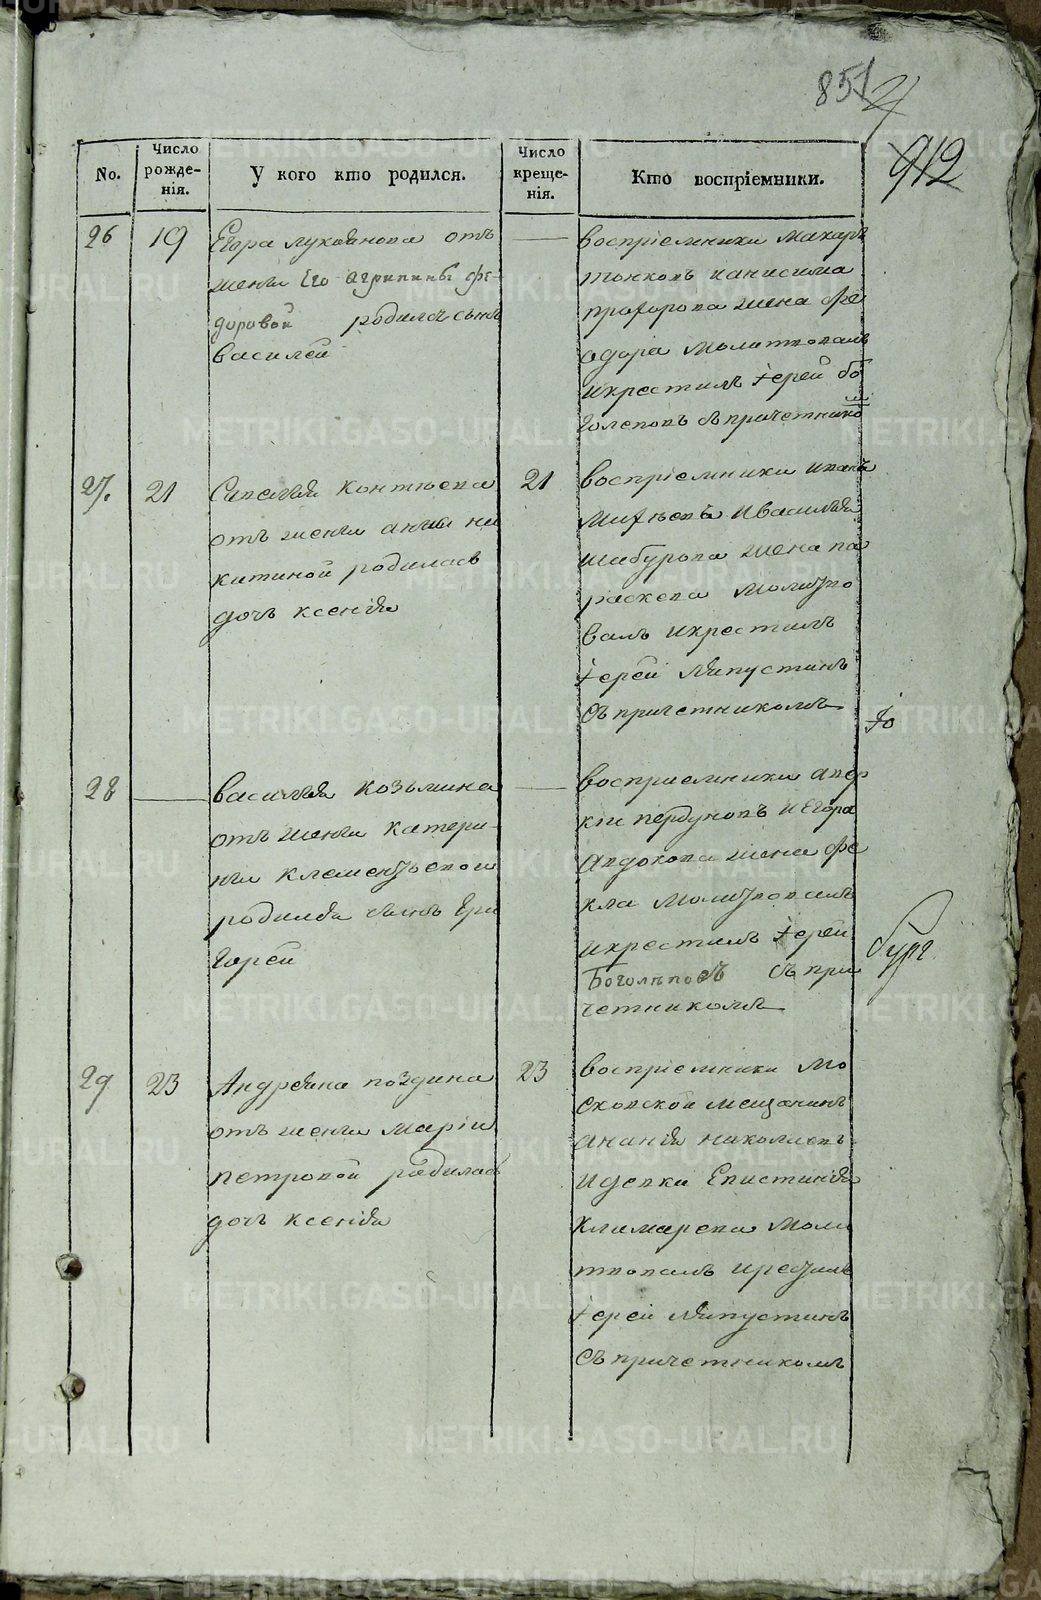 851
912
No.
Число рожде-
нія.
У кого кто родился.
Число креще-
нія.
Кто воспріемники.
26
19
Егора лукоянова отъ
жены Его агрипины фе-
доровой родился сынъ
василей
воспріемники макаръ
тонковъ
жена фе
одора молитвовалъ
икрестилъ іерей бо
голеповъ съпричетнико
27.
21
отъ жены анны ни
китиной родилась
дочь ксенія
21
воспріемники иванъ
ивасилья
шабурова жена па
раскева молитво
валъ икрестилъ
іерей ляпустинъ
съпричетникомъ
28
василья козьмина
отъ жены катери-
ны клементьевой
родился сынъ гри
горей
воспріемники
иЕгора
жена фе
кла молитвовалъ
икрестилъ іерей
Боголѣповъ съ при
четникомъ
29
23
Андреяна поздина
отъ жены маріи
петровой родилась
дочь ксенія
23
воспріемники мо
сковской мещанинъ
ананія николаевъ
идевка Епистинія
моли
твовалъ
іерей ляпустинъ
съпричетникомъ
METRIKI.GASO-URAL.RU